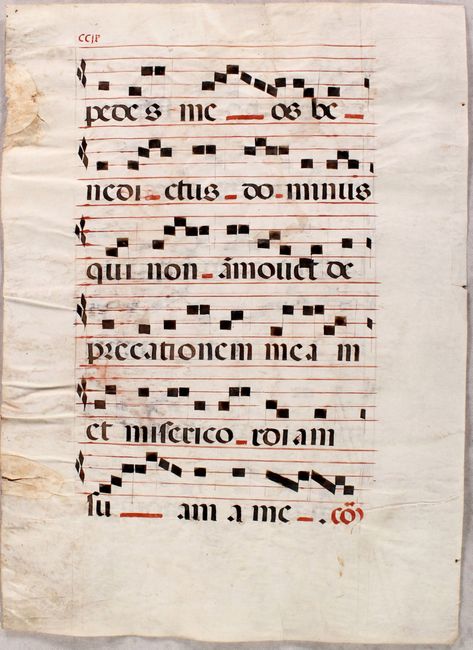 pedes me os be
nedi ctus do minus
qui non amouet de
precationem mea m
et miserico rdiam
su am a me . cõ